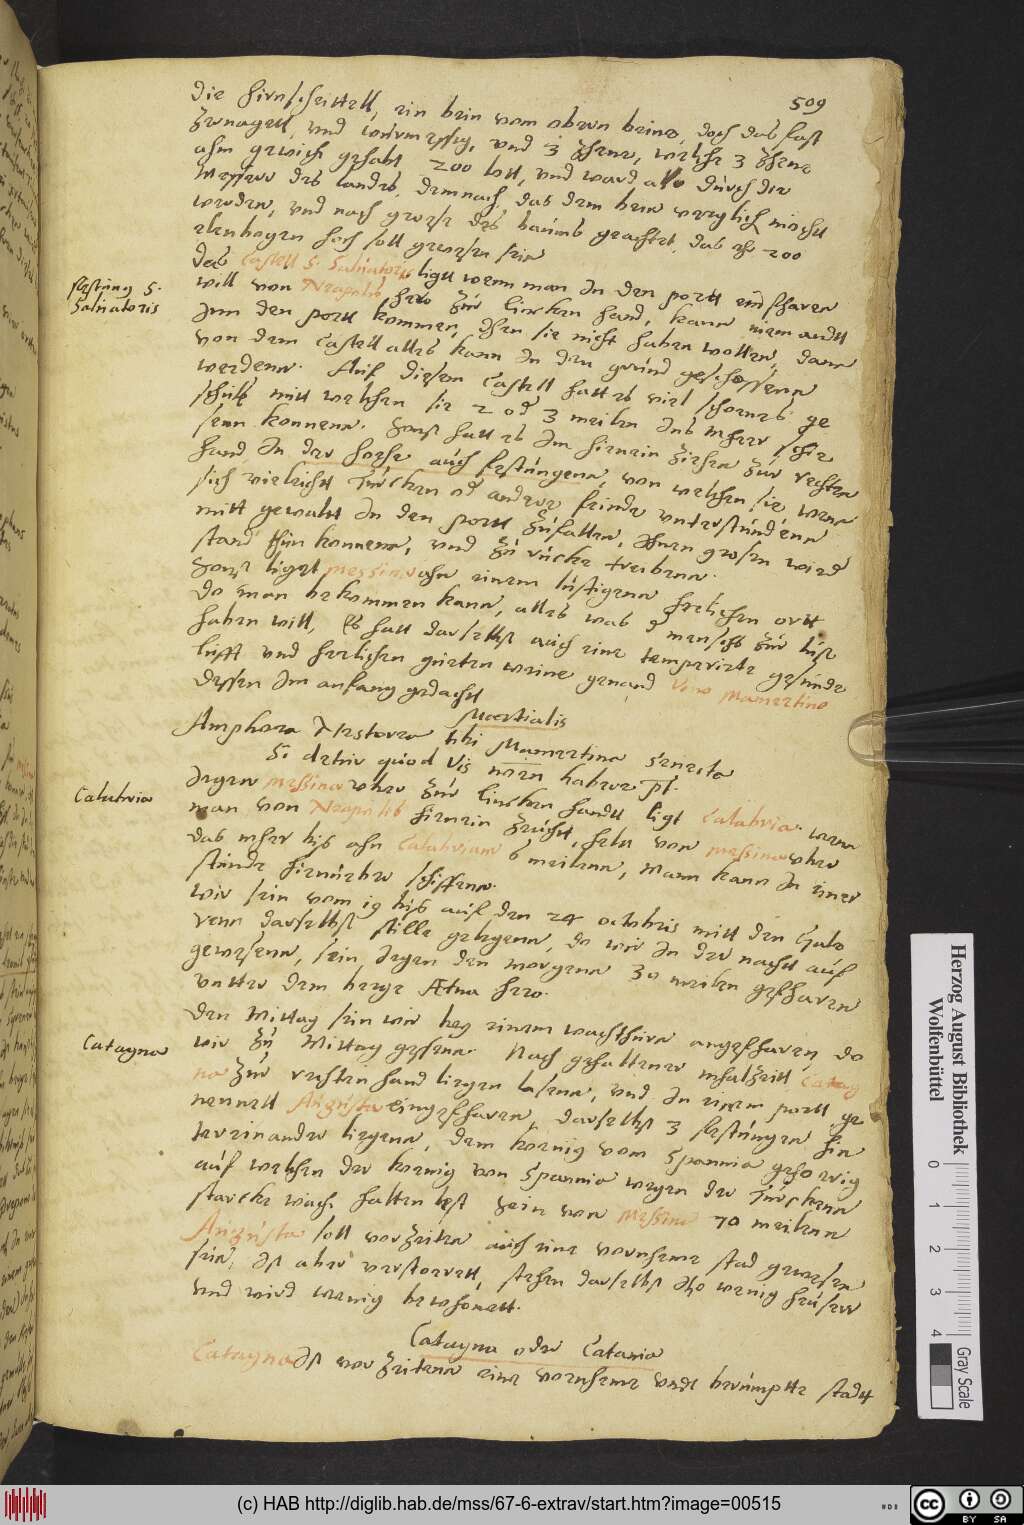 509
die hirnscheittell, ein bein vom obern beine, doch das fast
zernagett, und wurmessig, und 3 zhene, welche 3 zhene
ahm gewich gehabt 200 lott, und ward also durch die
Messere des landes, demnach das dem bein verglich möchtt
werden, und nach grosse des baums geachtet, das ehr 200
elenbogen hoch soll gewesen sein
Festung S.
Salvatoris
Das Castell S. Salvatoris ligtt wenn man in den portt einfharen
will von Neapolis herr zur lincken hand, kann niemandtt
inn den portt kommen, ehen sie nicht haben wollen, dann
von dem Castell alles kann in den grund geschossenn
werdenn. Auf diesem Castell hatt es viel schoenes ge
schutz mitt welchen sie 2 od 3 meilen ins mher schie
senn konnenn. Sonst hatt es im hinein ziehen zur rechten
hand in der hoehe auch festungenn, von welchen sie wenn
sich vieleichtt Türcken od andere feinde unterstündenn
mitt gewaltt in den portt zufallen, ihnen grosen wied
stand thun konnenn, und zu rücke treibenn.
Sonst ligtt Messina ahn einem lustigenn herlichen ortt
do man bekommen kann, alles was d mensch zur lust
haben will, Es hatt darselbst auch eine temperirte gesunde
lufft und herlichen guten weine genand Vino Mamertino
dessen im anfang gedacht
Martialis
Amphora Nestorea tibi Mamertina senecta
Si detur quod vis nomen habere pt.
Calabria
Jegen Messina uber zur lincken handt ligt Calabria. wenn
man von Neapolis hienein zeucht, hela von Messina uber
das mher bis ahn Calabriam 6 meilenn, Mann kann in einer
stunde hienüeber schiffenn.
Wir sein vom 19 bis auf den 24 octobris mitt den Gale
renn darselbst stille gelegenn, do wir in der nacht auf
gewesenn, sein Jegen den morgenn 30 meilen gefharen
untter dem berge Ætna hero.
Catagna
Den Mittag sein wir bey einem wachthurn angefharen, do
wir zu Mittag gesenn. Nach gehaltener mhalzeitt Catag
na zur rechten hand liegen lasenn, und in einem portt ge
nennett Augusta eingefharenn, darselbst 3 festungen hin
tereinander liegenn, dem koenig vom Spannia gehoerig
auf welchen der koenig von Spannia wegen der Türckenn
starcke wach halten lest sein von Messina 70 meilenn
Augusta soll vorzeiten auch eine vornheme stad gewesen
sein, ist aber verstoerett, stehen darselbst itzo wenig heuser
und wird wenig bewohnett.
Catagna oder Catania
Catagna ist vor zeitenn eine vornheme undt berümptte stadtt
Herzog August Bibliothek
Wolfenbüttel
0 1 2 3 4
Gray Scale
(c) HAB http://diglib.hab.de/mss/67-6-extrav/start.htm?image=00515
cc BY SA